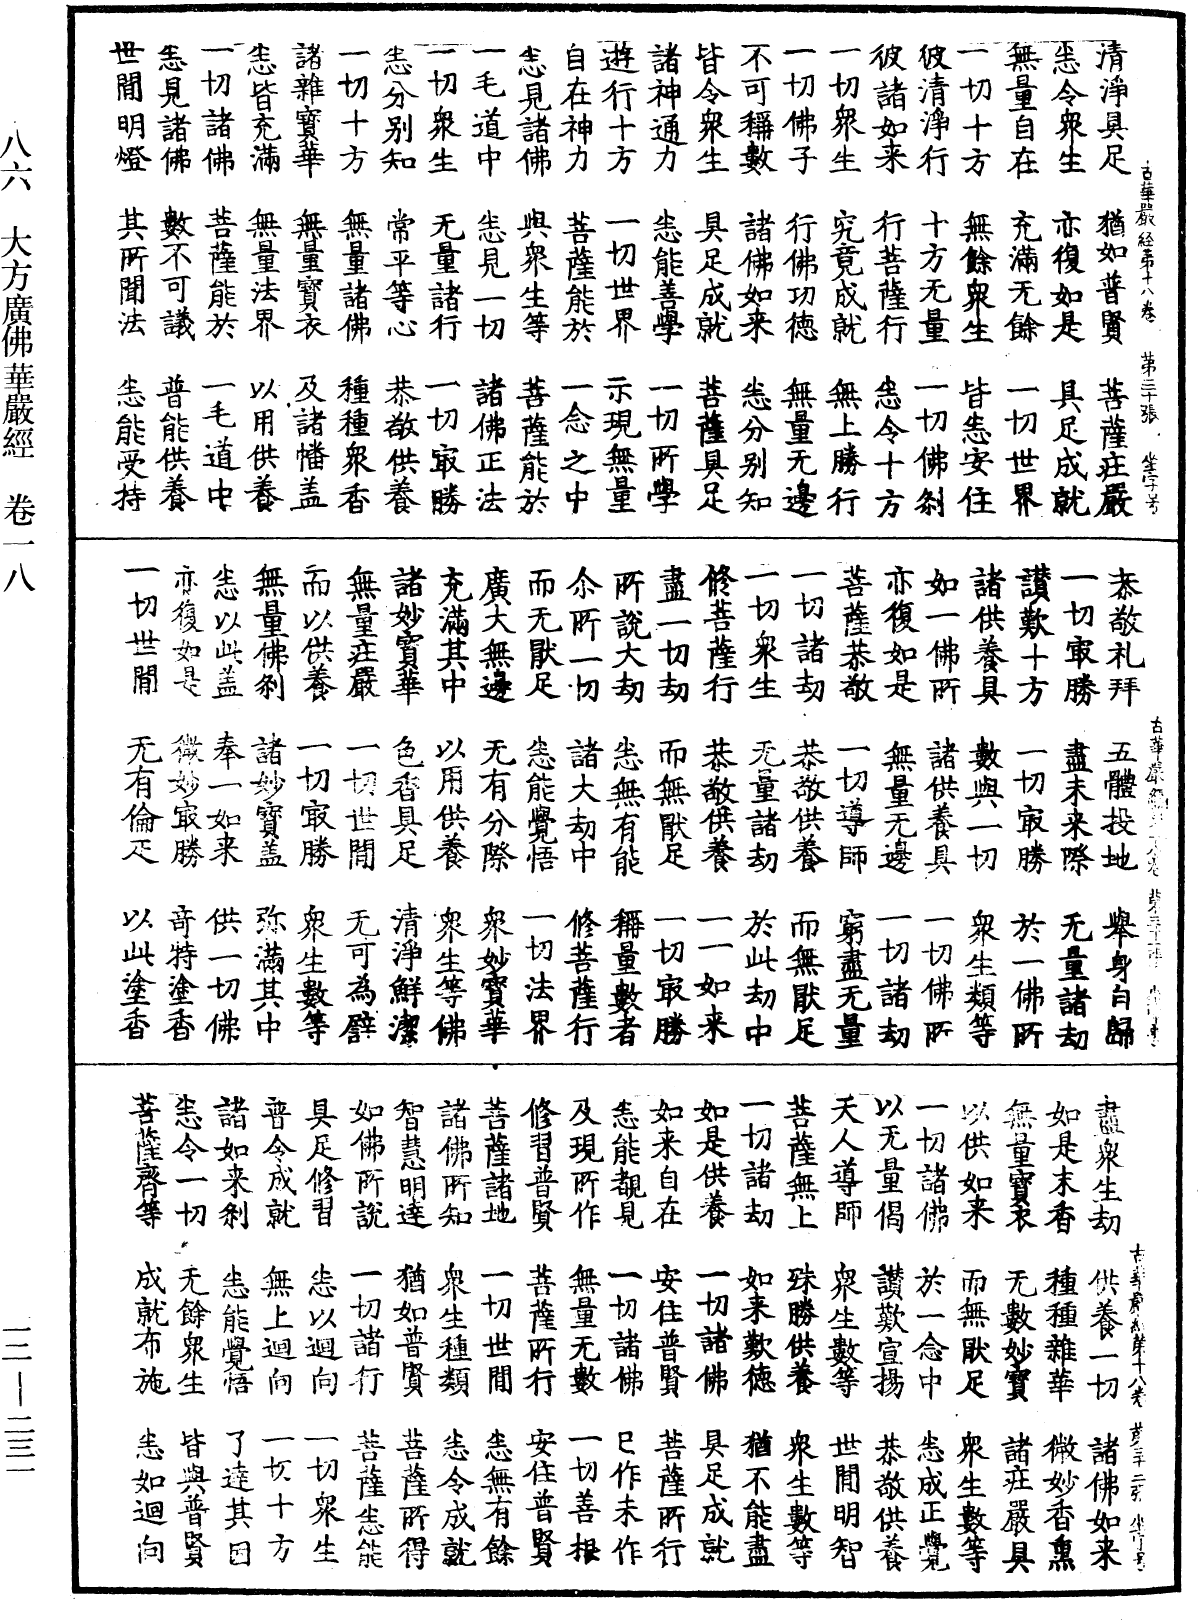 清淨具足　猶如普賢　菩薩莊嚴
悉令衆生　亦復如是　具足成就
無量自在　充滿无餘　一切世界
一切十方　無餘衆生　皆悉安住
彼清淨行　十方无量　一切佛刹
彼諸如来　行菩薩行　悉令十方
一切衆生　究竟成就　無上勝行
一切佛子　行佛功德　無量无邊
不可稱數　諸佛如来　悉分别知
皆令衆生　具足成就　菩薩具足
諸神通力　悉能善學　一切所學
遊行十方　一切世界　示現無量
自在神力　菩薩能於　一念之中
悉見諸佛　與衆生等　菩薩能於
一毛道中　悉見一切　諸佛正法
一切衆生　无量諸行　一切冣勝
悉分别知　常平等心　恭敬供養
一切十方　無量諸佛　種種衆香
諸雜寶華　無量寶衣　及諸幡盖
悉皆充滿　無量法界　以用供養
一切諸佛　菩薩能於　一毛道中
悉見諸佛　數不可議　普能供養
世間明燈　其所聞法　悉能受持
古華嚴經第十八卷　第三十張　坐字号
恭敬礼拜　五體投地　舉身自歸
一切冣勝　盡未来際　无量諸劫
讃歎十方　一切冣勝　於一佛所
諸供養具　數與一切　衆生類等
如一佛所　諸供養具　一切佛所
亦復如是　無量无邊　一切諸劫
菩薩恭敬　一切導師　窮盡无量
一切諸劫　恭敬供養　而無猒足
一切衆生　无量諸劫　於此劫中
修菩薩行　恭敬供養　一一如来
盡一切劫　而無猒足　一切冣勝
所說大劫　悉無有能　稱量數者
尒所一切　諸大劫中　修菩薩行
而无猒足　悉能覺悟　一切法界
廣大無邊　无有分際　衆妙寶華
充滿其中　以用供養　衆生等佛
諸妙寶華　色香具足　清淨鮮潔
無量莊嚴　一切世間　无可為譬
而以供養　一切冣勝　衆生數等
無量佛刹　諸妙寶盖　弥滿其中
悉以此盖　奉一如来　供一切佛
亦復如是　微妙冣勝　竒特塗香
一切世間　无有倫疋　以此塗香
盡衆生劫　供養一切　諸佛如来
如是末香　種種雜華　微妙香熏
無量寶衣　无數妙寶　諸莊嚴具
以供如来　而無猒足　衆生數等
一切諸佛　於一念中　悉成正覺
以无量偈　讃歎宣揚　恭敬供養
天人導師　衆生數等　世間明智
菩薩無上　殊勝供養　衆生數等
一切諸劫　如来歎德　猶不能盡
如是供養　一切諸佛　具足成就
如来自在　安住普賢　菩薩所行
悉能覩見　一切諸佛　已作未作
及現所作　無量无數　一切善根
修習普賢　菩薩所行　安住普賢
菩薩諸地　一切世間　悉無有餘
諸佛所知　衆生種類　悉令成就
智慧明達　猶如普賢　菩薩所得
如佛所說　一切諸行　菩薩悉能
具足修習　悉以迴向　一切衆生
普令成就　無上迴向　一切十方
諸如来刹　悉能覺悟　了達其因
悉令一切　无餘衆生　皆與普賢
菩薩齊等　成就布施　悉如迴向
古華嚴經第十八卷　第三十二張　坐字号
八六　大方廣佛華嚴經　卷一八
一二—二三一